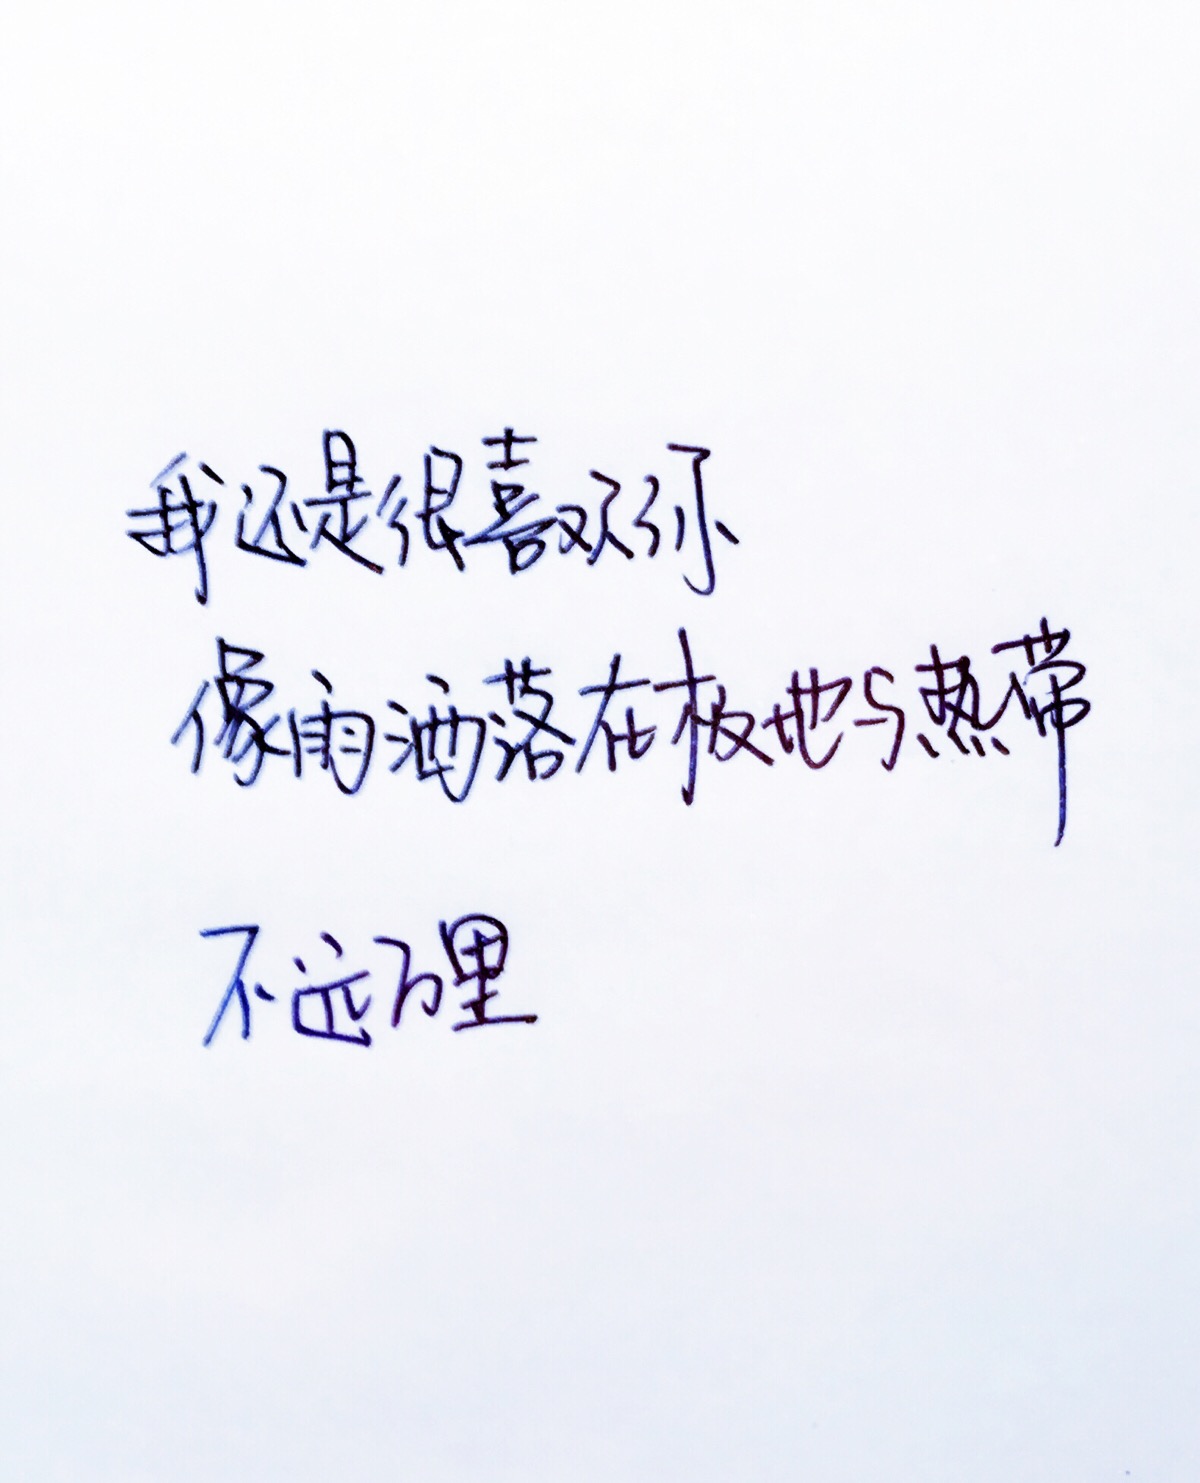 我还是很喜欢你
像雨洒落在极地与热带
不远万里